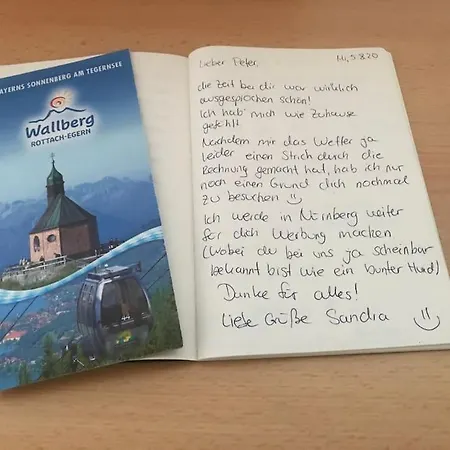 BAYERNS SONNENBERG AM TEGERNSEE
Wallberg
ROTTACH-EGERN
Lieber Peter,
Mi, 5.8.20
die Zeit bei dir war wirklich
ausgesprochen schön!
Ich hab' mich wie Zuhause
gefühlt.
Nachdem mir das Wetter ja
leider einen Strich durch die
Rechnung gemacht hat, hab ich nur
noch einen Grund dich nochmal
zu besuchen
Ich werde in Nürnberg weiter
für dich Werbung machen
(wobei du bei uns ja scheinbar
bekannt bist wie ein bunter Hund)
Danke für alles!
Liebe Grüße Sandra